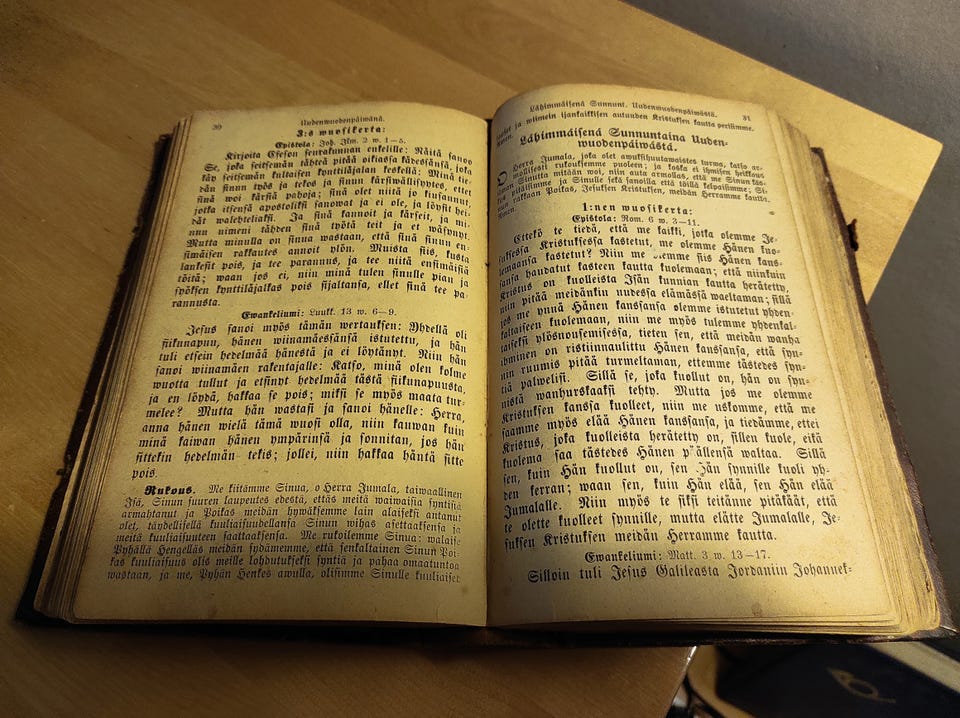 30
Uudenwuodenpäiwänä.
3:s wuosikerta:
Epistola: Joh. Ilm. 2 w. 1–5.
Kirjoita Efeson seurakunnan enkelille: Näitä sanoo
Se, joka seitsemän tähteä pitää oikiassa kädessänsä, joka
käy seitsemän kultaisen kynttiläjalan keskellä: Minä tie-
dän sinun työs ja tekos ja sinun kärsiwällisyytes, ettes
sinä woi kärsiä pahoja; sinä olet niitä jo kiusannut,
jotka itsensä apostoliksi sanowat ja ei ole, ja löysit hei-
dät walehteliaksi. Ja sinä kannoit ja kärseit, ja mi-
nun nimeni tähden sinä työtä teit ja et wäsynyt.
Mutta minulla on sinua wastaan, että sinä sinun en-
simäisen rakkautes annoit ylön. Muista siis, kusta
lankesit pois, ja tee parannus, ja tee niitä ensimäisiä
töitä; waan jos ei, niin minä tulen sinulle pian ja
syöksen kynttiläjalkas pois sijaltansa, ellet sinä tee pa-
rannusta.
Ewankeliumi: Luukk. 13 w. 6–9.
Jesus sanoi myös tämän wertauksen: Yhdellä oli
fiikunapuu, hänen wiinamäessänsä istutettu, ja hän
tuli etsein hedelmää hänestä ja ei löytänyt. Niin hän
sanoi wiinamäen rakentajalle: Katso, minä olen kolme
wuotta tullut ja etsinyt hedelmää tästä fiikunapuusta,
ja en löydä, hakkaa se pois; miksi se myös maata tur-
melee? Mutta hän wastasi ja sanoi hänelle: Herra,
anna hänen wielä tämä wuosi olla, niin kauwan kuin
minä kaiwan hänen ympärinsä ja sonnitan, jos hän
sittekin hedelmän tekis; jollei, niin hakkaa häntä sitte
pois.
Rukous. Me kiitämme Sinua, o Herra Jumala, taiwaallinen
Isä, Sinun suuren laupeutes edestä, ettäs meitä waiwaisia syntisiä
armahtanut ja Poikas meidän hywäksemme lain alaiseksi antanut
olet, täydellisellä kuuliaisuudellansa Sinun wihas asettaaksensa ja
meitä kuuliaisuuteen saattaaksensa. Me rukoilemme Sinua: walaise
Pyhällä Hengelläs meidän sydämemme, että senkaltainen Sinun Poi-
kas kuuliaisuus olis meille lohdutukseksi syntiä ja pahaa omaatuntoa
wastaan, ja me, Pyhän Henkes awulla, olisimme Sinulle kuuliaiset
Lähimmäisenä Sunnunt. Uudenwuodenpäiwästä.
31
ja wiimein ijankaikkisen autuuden Kristuksen kautta perisimme.
Amen.
Lähimmäisenä Sunnuntaina Uuden-
wuodenpäiwästä.
O Herra Jumala, joka olet awuksihuutamaistes turwa, katso ar-
mollisesti rukouksemme puoleen; ja koska ei ihmisen heikkous
ilman Sinutta mitään woi, niin auta armollas, että me Sinun käs-
kys pitäisimme ja Sinulle sekä sanoilla että töillä kelpaisimme; Si-
nun rakkaan Poikas, Jesuksen Kristuksen, meidän Herramme kautta.
Amen.
1:nen wuosikerta:
Epistola: Rom. 6 w. 3–11.
Ettekö te tiedä, että me kaikki, jotka olemme Je-
suksessa Kristuksessa kastetut, me olemme Hänen kuo-
lemaansa kastetut? Niin me olemme siis Hänen kans-
sansa haudatut kasteen kautta kuolemaan; että niinkuin
Kristus on kuolleista Isän kunnian kautta herätetty,
niin pitää meidänkin uudessa elämässä waeltaman; sillä
jos me ynnä Hänen kanssansa olemme istutetut yhden-
kaltaiseen kuolemaan, niin me myös tulemme yhdenkal-
taiseksi ylösnousemisessa, tieten sen, että meidän wanha
ihminen on ristiinnaulittu Hänen kanssansa, että syn-
nin ruumis pitää turmeltaman, ettemme tästedes syn-
tiä palwelisi. Sillä se, joka kuollut on, hän on syn-
nistä wanhurskaaksi tehty. Mutta jos me olemme
Kristuksen kanssa kuolleet, niin me uskomme, että me
saamme myös elää Hänen kanssansa, ja tiedämme, ettei
Kristus, joka kuolleista herätetty on, sillen kuole, eikä
kuolema saa tästedes Hänen päällensä waltaa. Sillä
sen, kuin Hän kuollut on, sen Hän synnille kuoli yh-
den kerran; waan sen, kuin Hän elää, sen Hän elää
Jumalalle. Niin myös te siksi teitänne pitäkäät, että
te olette kuolleet synnille, mutta elätte Jumalalle, Je-
suksen Kristuksen meidän Herramme kautta.
Ewankeliumi: Matt. 3 w. 13–17.
Silloin tuli Jesus Galileasta Jordaniin Johannek-